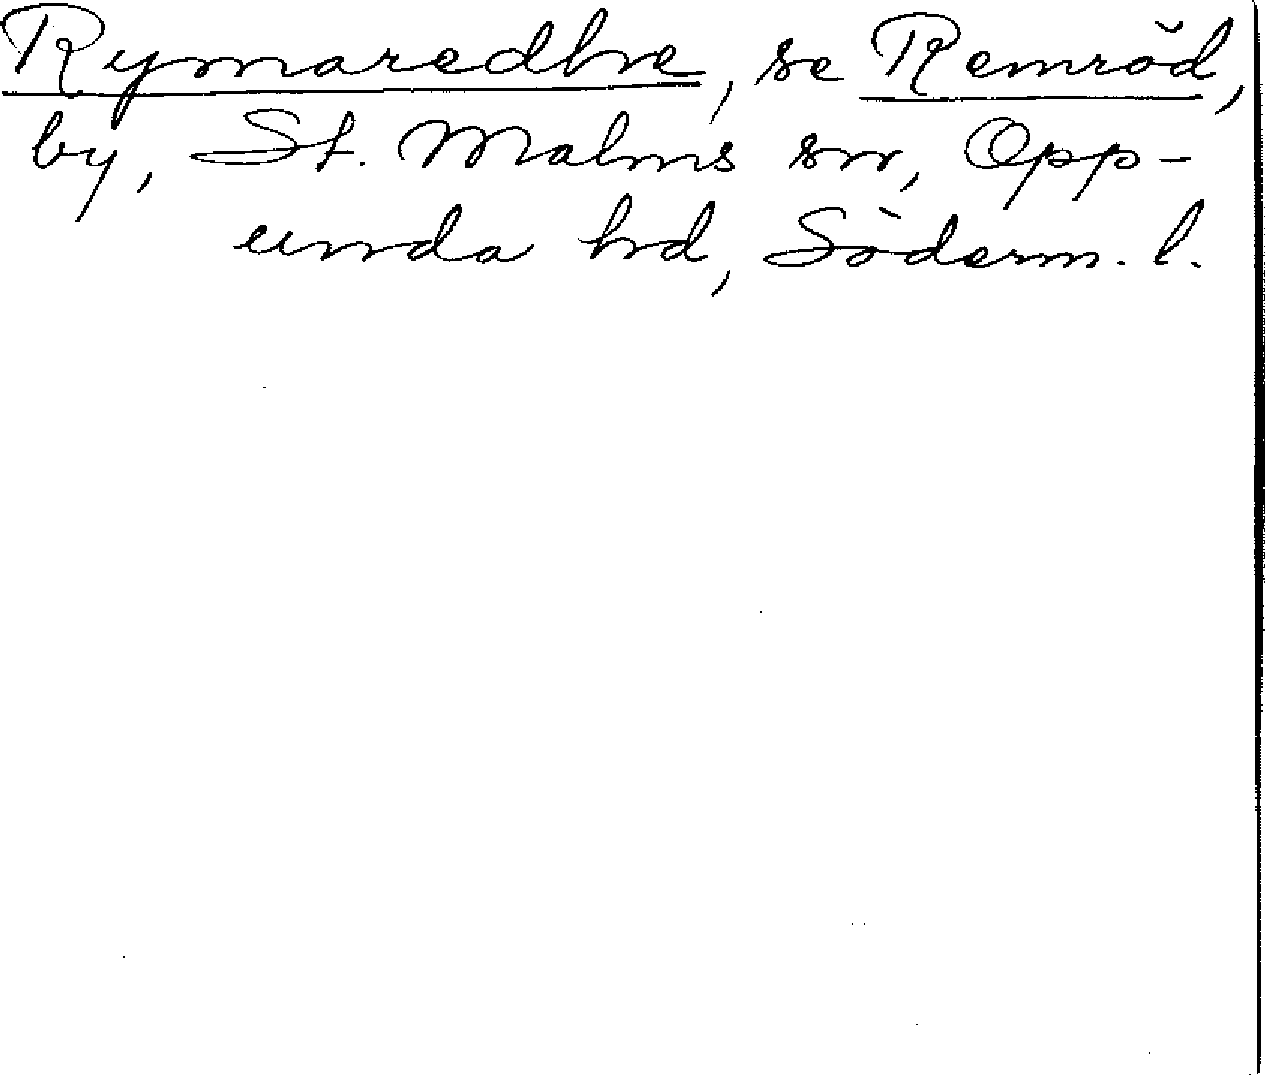 Rymaredhe, se Remröd,
by, St. Malms sn, Opp-
unda hd, Söderm. l.